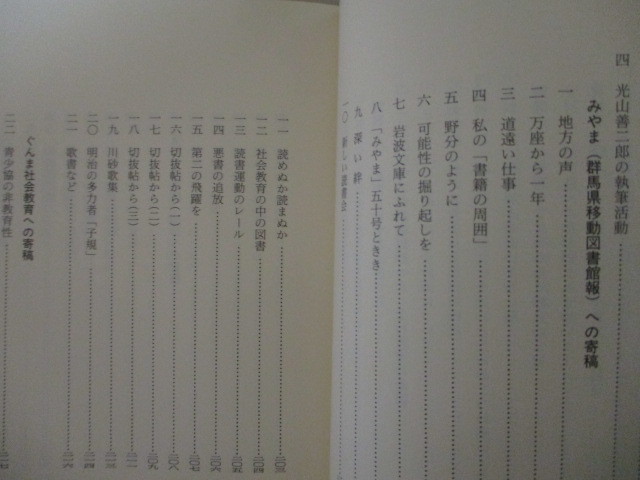 四 光山善二郎の執筆活動
みやま（群馬県移動図書館報）への寄稿
一 地方の声
二 万座から一年
三 道遠い仕事
四 私の「書籍の周囲」
五 野分のように
六 可能性の掘り起しを
七 岩波文庫にふれて
八 「みやま」五十号ときき
九 深い絆
一〇 新しい読書法
一一 読めぬか読まぬか 二〇三
一二 社会教育の中の図書 二〇四
一三 読書運動のレール 二〇五
一四 悪書の追放 二〇六
一五 第二の飛躍を 二〇七
一六 切抜帖から（一） 二〇八
一七 切抜帖から（二） 二〇九
一八 切抜帖から（三） 二一一
一九 川砂歌集 二一三
二〇 明治の多力者「子規」 二一四
二一 歌書など 二一六
ぐんま社会教育への寄稿
二二 青少協の非教育性 二一七